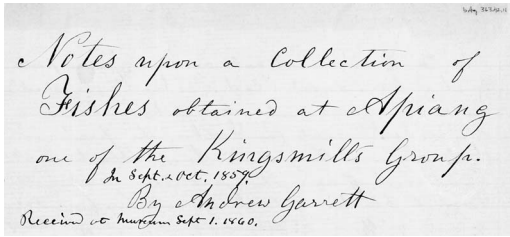 Notes upon a Collection of
Fishes obtained at Apiang
one of the Kingsmills Group.
In Sept. & Oct, 1859.
By Andrew Garrett
Received at museum Sept 1. 1860.